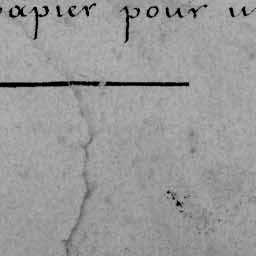 papier pour u